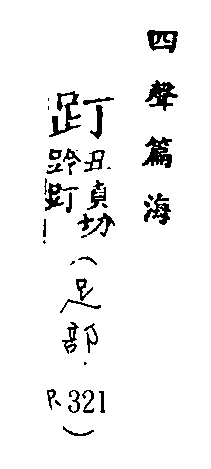 四聲篇海
𧿳
丑貞切
跉𧿳
(足部.
P.321
)